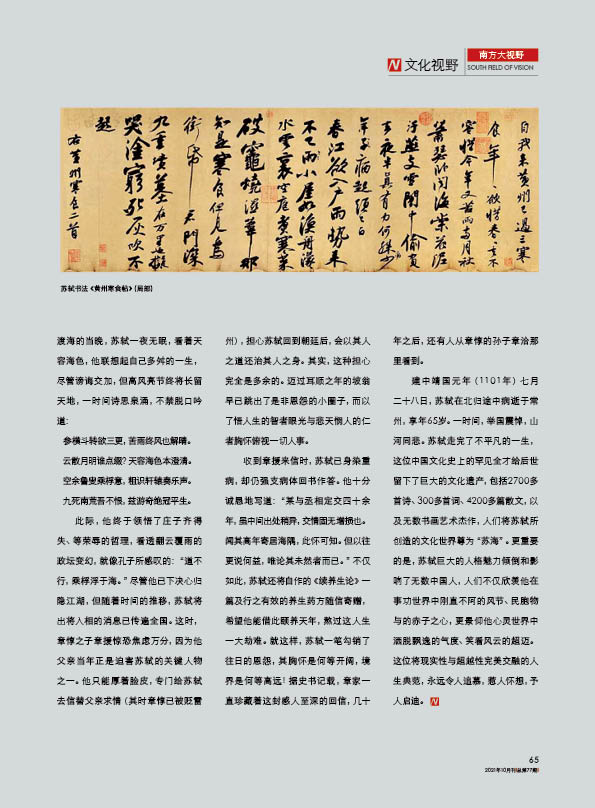 文化视野
南方大视野
SOUTH FIELD OF VISION
自我来黄州已過三寒
食年〻欲惜春〻去不
容惜今年又苦雨兩月秋
蕭瑟卧聞海棠花泥
汙燕支雪闇中偷負
去夜半真有力何殊少
年子病起須已白
春江欲入户雨勢来
不已雨小屋如漁舟濛〻
水雲裏空庖煮寒菜
破竈燒濕葦那
知是寒食但見烏
銜帋君門深
九重墳墓在万里也擬
哭塗窮死灰吹不
起
右黄州寒食二首
苏轼书法《黄州寒食帖》（局部）
渡海的当晚，苏轼一夜无眠，看着天
容海色，他联想起自己多舛的一生，
尽管谤诲交加，但高风亮节终将长留
天地，一时间诗思泉涌，不禁脱口吟
道：
参横斗转欲三更，苦雨终风也解晴。
云散月明谁点缀？天容海色本澄清。
空余鲁叟乘桴意，粗识轩辕奏乐声。
九死南荒吾不恨，兹游奇绝冠平生。
此际，他终于领悟了庄子齐得
失、等荣辱的哲理，看透翻云覆雨的
政坛变幻，就像孔子所感叹的：“道不
行，乘桴浮于海。”尽管他已下决心归
隐江湖，但随着时间的推移，苏轼将
出将入相的消息已传遍全国。这时，
章惇之子章援惊恐焦虑万分，因为他
父亲当年正是迫害苏轼的关键人物
之一。他只能厚着脸皮，专门给苏轼
去信替父亲求情（其时章惇已被贬雷
州），担心苏轼回到朝廷后，会以其人
之道还治其人之身。其实，这种担心
完全是多余的。迈过耳顺之年的坡翁
早已跳出了是非恩怨的小圈子，而以
了悟人生的智者眼光与悲天悯人的仁
者胸怀俯视一切人事。
收到章援来信时，苏轼已身染重
病，却仍强支病体回书作答。他十分
诚恳地写道：“某与丞相定交四十余
年，虽中间出处稍异，交情固无增损也。
闻其高年寄居海隅，此怀可知。但以往
更说何益，唯论其未然者而已。”不仅
如此，苏轼还将自作的《续养生论》一
篇及行之有效的养生药方随信寄赠，
希望他能借此颐养天年，熬过这人生
一大劫难。就这样，苏轼一笔勾销了
往日的恩怨，其胸怀是何等开阔，境
界是何等高远！据史书记载，章家一
直珍藏着这封感人至深的回信，几十
年之后，还有人从章惇的孙子章洽那
里看到。
建中靖国元年（1101年）七月
二十八日，苏轼在北归途中病逝于常
州，享年65岁。一时间，举国震悼，山
河同悲。苏轼走完了不平凡的一生，
这位中国文化史上的罕见全才给后世
留下了巨大的文化遗产，包括2700多
首诗、300多首词、4200多篇散文，以
及无数书画艺术杰作，人们将苏轼所
创造的文化世界尊为“苏海”。更重要
的是，苏轼巨大的人格魅力倾倒和影
响了无数中国人，人们不仅欣羡他在
事功世界中刚直不阿的风节、民胞物
与的赤子之心，更景仰他心灵世界中
洒脱飘逸的气度、笑看风云的超迈。
这位将现实性与超越性完美交融的人
生典范，永远令人追慕，惹人怀想，予
人启迪。
65
2021年10月刊|总第77期|